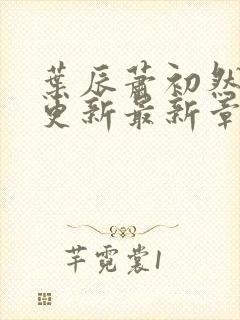 葉辰蕭初然
更新最新章
芊霓裳1